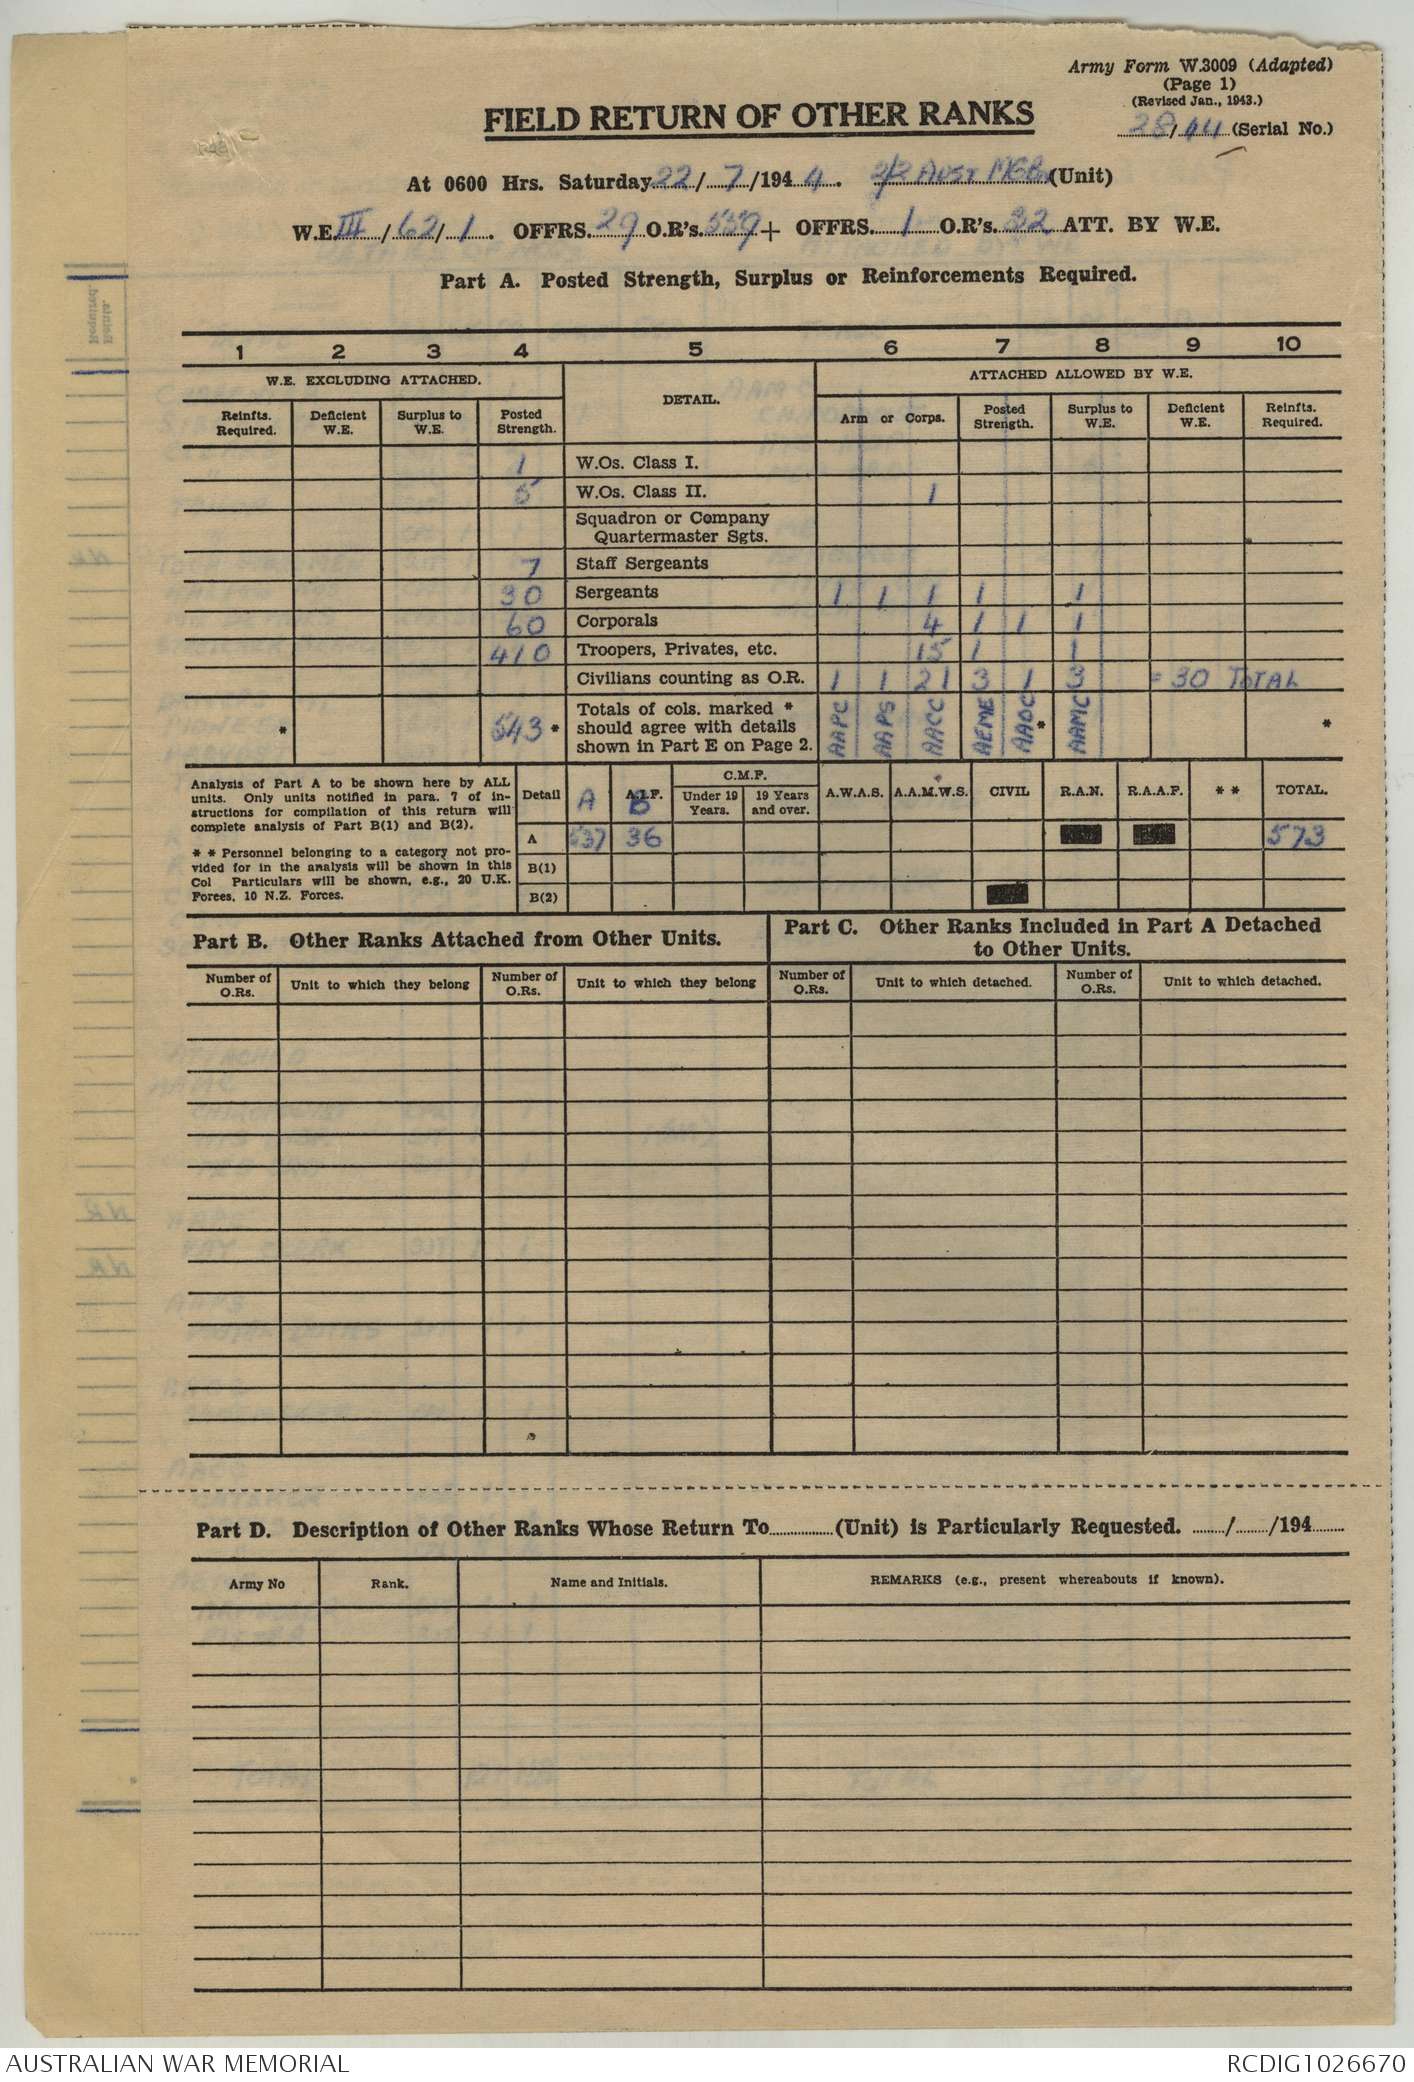 Army Form W.3009 (Adapted)
(Page 1)
(Revised Jan., 1943.)
28/44 (Serial No.)
FIELD RETURN OF OTHER RANKS
At 0600 Hrs. Saturday 22/7/1944. 2/2 AUST MG Bn (Unit)
W.E. III/62/1. OFFRS. 29 O.R's. 539 + OFFRS. 1 O.R's. 32 ATT. BY W.E.
Part A. Posted Strength, Surplus or Reinforcements Required.
1 2 3 4 5 6 7 8 9 10
W.E. EXCLUDING ATTACHED. DETAIL. ATTACHED ALLOWED BY W.E.
Reinfts. Required. Deficient W.E. Surplus to W.E. Posted Strength. Arm or Corps. Posted Strength. Surplus to W.E. Deficient W.E. Reinfts. Required.
1 W.Os. Class I.
5 W.Os. Class II. 1
Squadron or Company
Quartermaster Sgts.
7 Staff Sergeants
30 Sergeants 1 1 1 1 1
60 Corporals 4 1 1 1
410 Troopers, Privates, etc. 15 1 1
Civilians counting as O.R. 1 1 21 3 1 3 = 30 TOTAL
* 543 * Totals of cols. marked *
should agree with details
shown in Part E on Page 2.
AAPC AAPS AACC AEME AAOC * AAMC *
Analysis of Part A to be shown here by ALL
units. Only units notified in para. 7 of in-
structions for compilation of this return will
complete analysis of Part B(1) and B(2).
* * Personnel belonging to a category not pro-
vided for in the analysis will be shown in this
Col Particulars will be shown, e.g., 20 U.K.
Forces, 10 N.Z. Forces.
Detail A A.I.F. B C.M.F. Under 19 Years. 19 Years and over. A.W.A.S. A.A.M.W.S. CIVIL R.A.N. R.A.A.F. * * TOTAL.
A 537 36 573
B(1)
B(2)
Part B. Other Ranks Attached from Other Units.
Part C. Other Ranks Included in Part A Detached
to Other Units.
Number of O.Rs. Unit to which they belong Number of O.Rs. Unit to which they belong Number of O.Rs. Unit to which detached. Number of O.Rs. Unit to which detached.
Part D. Description of Other Ranks Whose Return To (Unit) is Particularly Requested. / /194
Army No Rank. Name and Initials. REMARKS (e.g., present whereabouts if known).
AUSTRALIAN WAR MEMORIAL RCDIG1026670